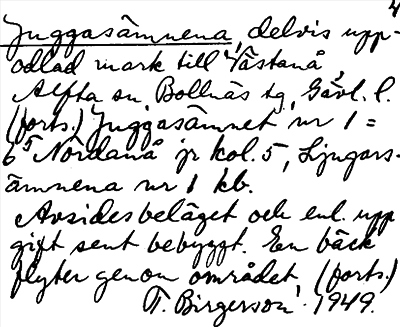 4
Juggasämnena, delvis upp-
odlad mark till Västanå
Alfta sn, Bollnäs tg, Gävl. l.
(forts.) Juggasämnet nr 1 =
6⁵ Nordanå jr kol. 5, Ljungars-
ämnena nr 1 kb.
Avsides beläget och enl. upp
gift sent bebyggt. En bäck
flyter genom området (forts.)
T. Birgerson 1949.